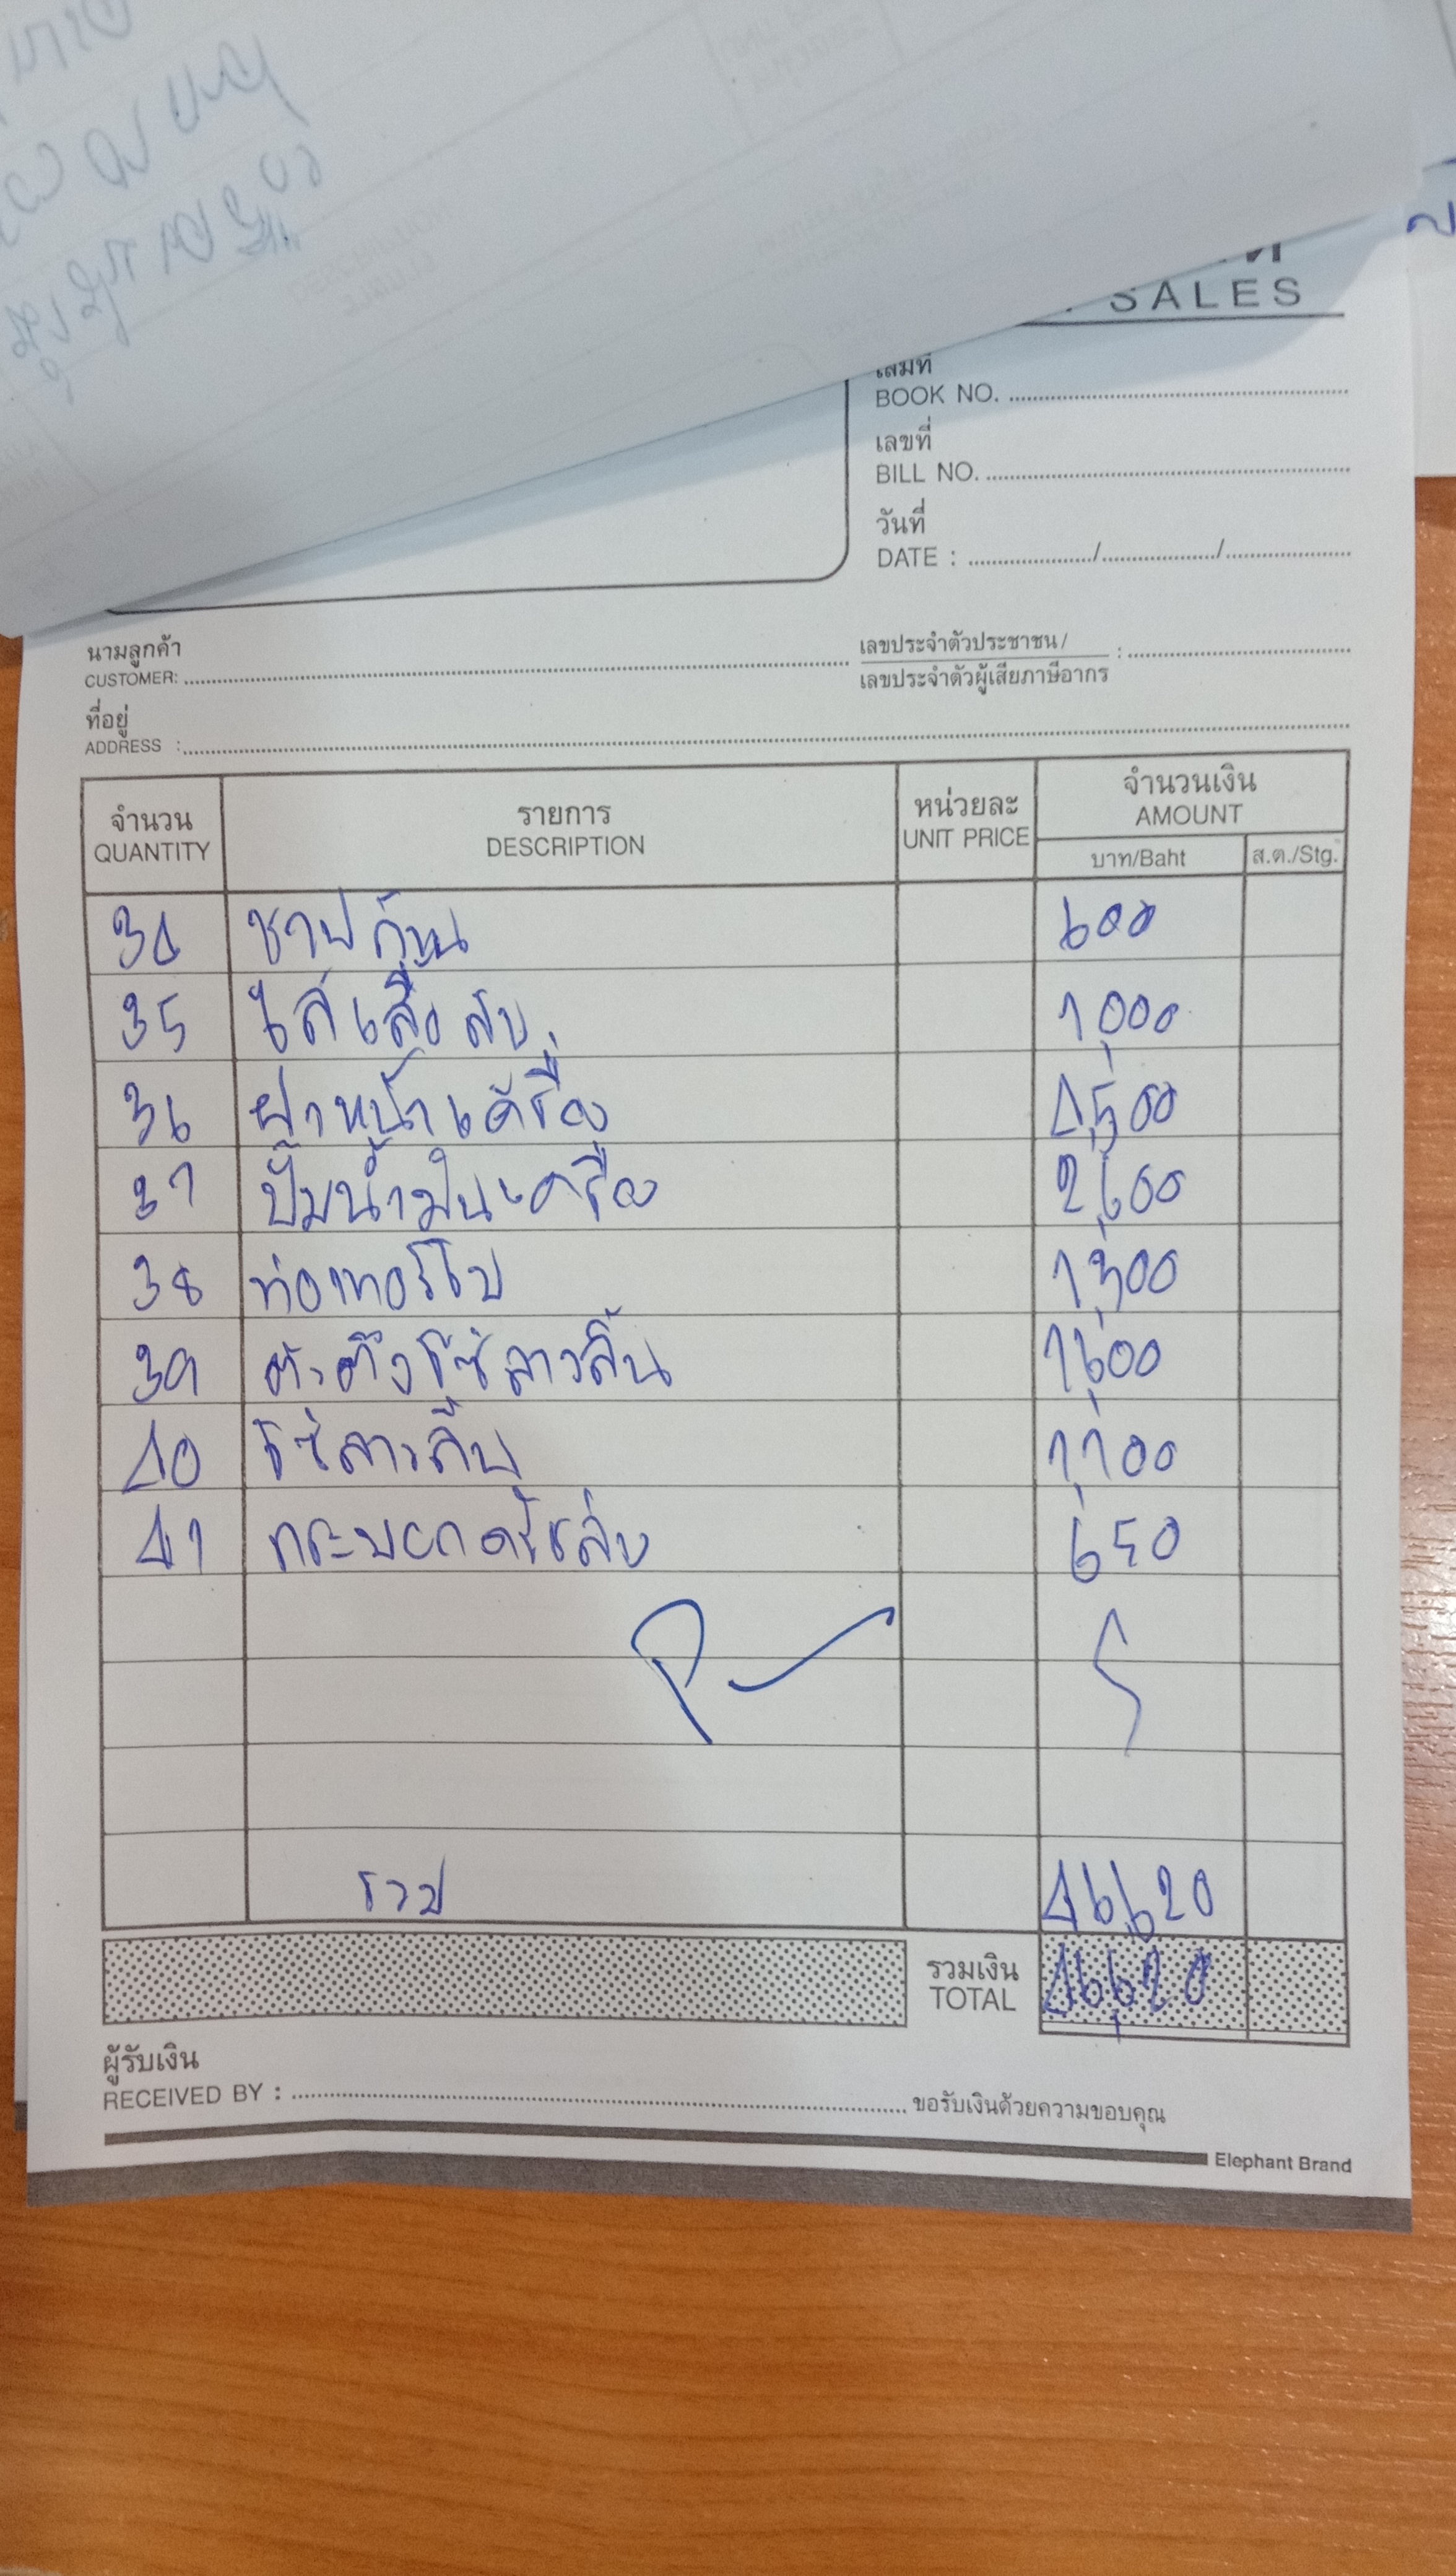 SALES
เล่มที่
BOOK NO.
เลขที่
BILL NO.
วันที่
DATE : / /
นามลูกค้า
CUSTOMER:
เลขประจำตัวประชาชน/
เลขประจำตัวผู้เสียภาษีอากร :
ที่อยู่
ADDRESS :
จำนวน รายการ หน่วยละ จำนวนเงิน
QUANTITY DESCRIPTION UNIT PRICE AMOUNT
บาท/Baht ส.ต./Stg.
34 ชาฟก้าน 600
35 ไส่เสื้อสูบ 1,000
36 ฝาหน้าเครื่อง 4,500
37 ปั๊มน้ำมันเครื่อง 2,600
38 ท่อเทอร์โบ 1,300
39 ตะตึงโซ่ลาวลิ้น 1,600
40 โซ่ลาวลิ้น 1,100
41 กระบอกครัชล่าง 650
รวม 46,620
รวมเงิน
TOTAL 46,620
ผู้รับเงิน
RECEIVED BY : ขอรับเงินด้วยความขอบคุณ
Elephant Brand